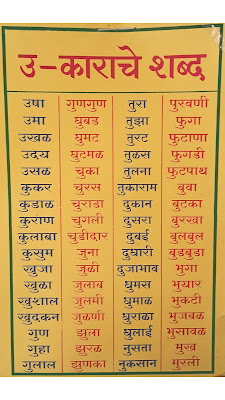 उ-काराचे शब्द
उषा गुणगुण तुरा पुरवणी
उमा घुबड तुझा फुगा
उखळ घुमट तुरट फुटाणा
उदय घुटमळ तुळस फुगडी
उसळ चुका तुलना फुटपाथ
कुकर चुरस तुकाराम बुवा
कुडाळ चुराडा दुकान बुटका
कुराण चुगली दुसरा बुरखा
कुलाबा चुडीदार दुबई बुलबुल
कुसुम जुना दुधारी बुडबुडा
खुजा जुळी दुजाभाव भुगा
खुळा जुलाब धुमस भुयार
खुशाल जुलमी धुमाळ भुकटी
खुदकन जुळणी धुराळा भुजबळ
गुण झुला धुलाई भुसावळ
गुहा झुरळ नुसता मुख
गुलाल झुणका नुकसान मुरली